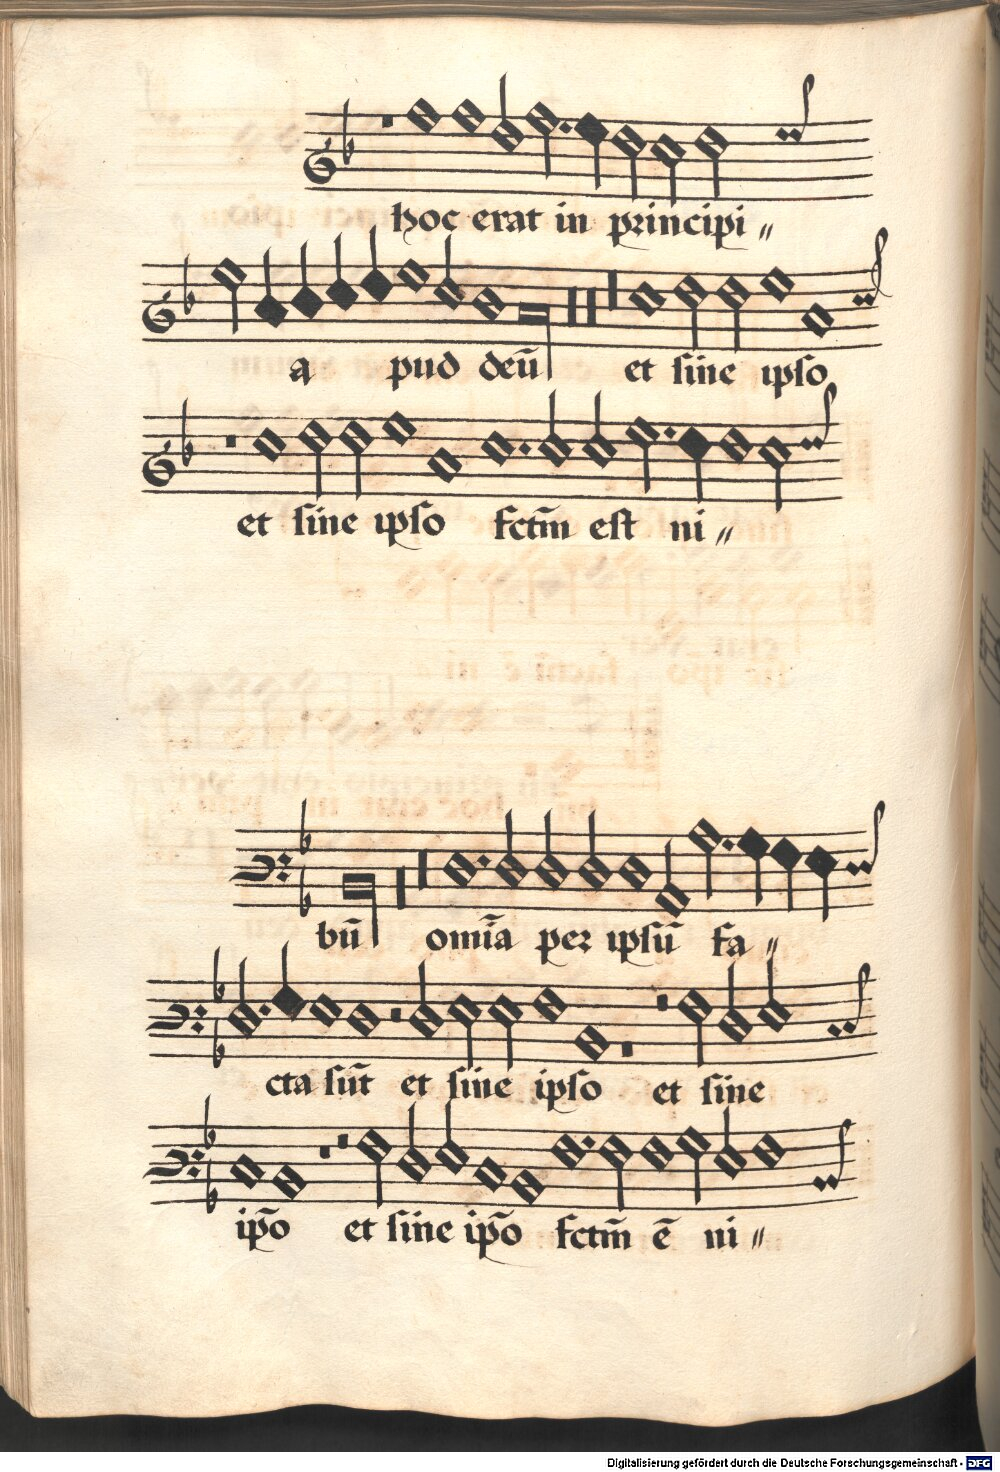 hoc erat in principi〃
a pud deū et sine ipso
et sine ipso fctm̄ est ni〃
bū omīa per ipsū fa〃
cta sūt et sine ipso et sine
ip̄o et sine ip̄o fctm̄ ē ni〃
Digitalisierung gefördert durch die Deutsche Forschungsgemeinschaft - DFG